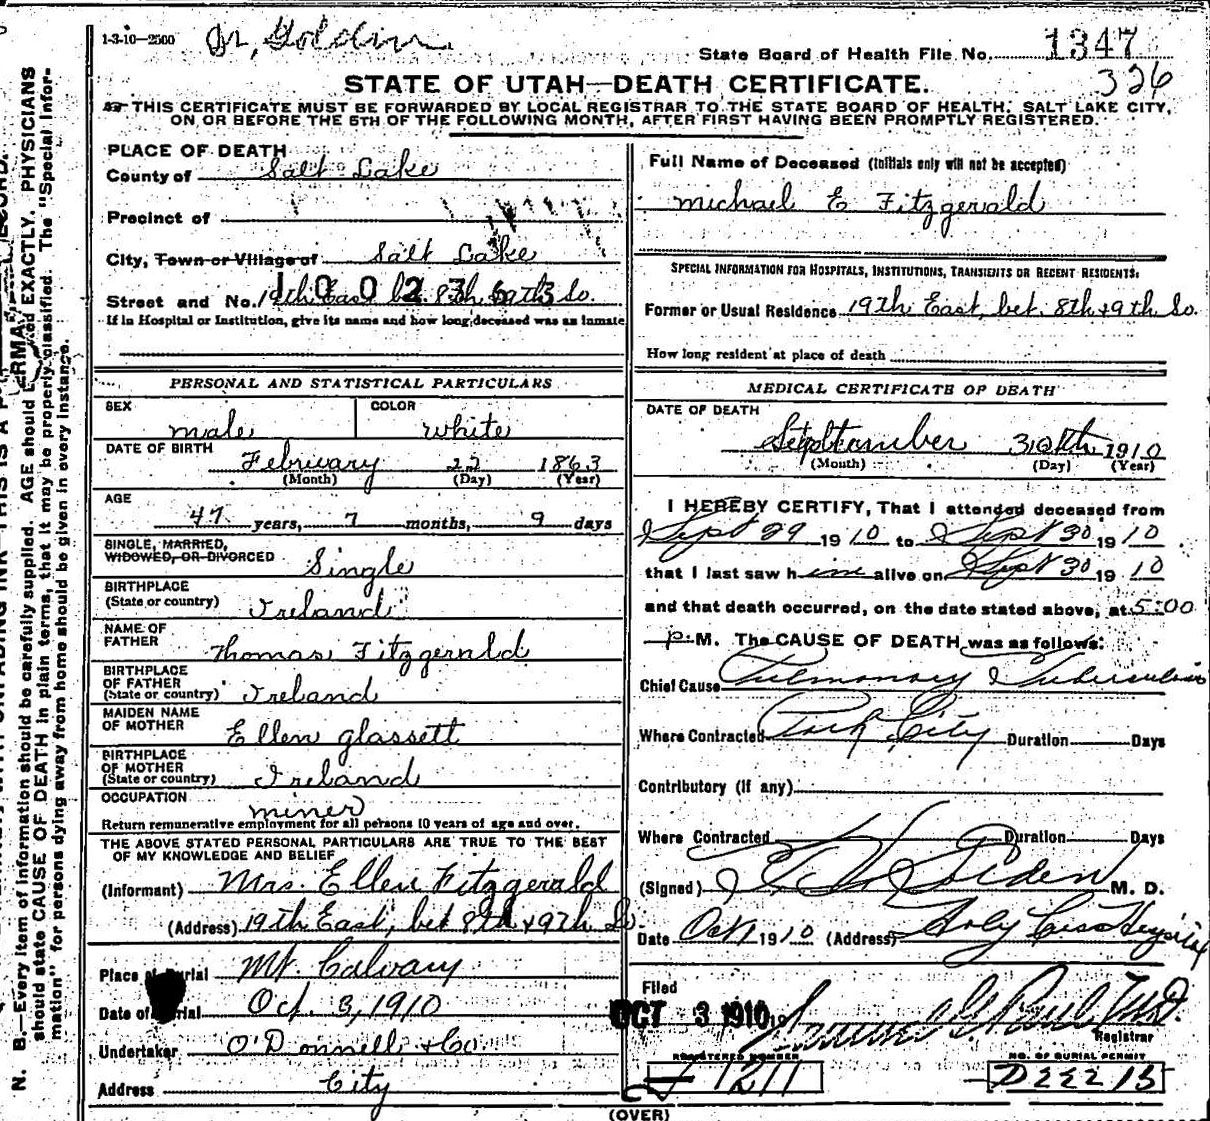 1-3-10-2500 Dr. Golden
State Board of Health File No. 1347
326
STATE OF UTAH—DEATH CERTIFICATE.
THIS CERTIFICATE MUST BE FORWARDED BY LOCAL REGISTRAR TO THE STATE BOARD OF HEALTH, SALT LAKE CITY,
ON OR BEFORE THE 5TH OF THE FOLLOWING MONTH, AFTER FIRST HAVING BEEN PROMPTLY REGISTERED.
PLACE OF DEATH
County of Salt Lake
Precinct of
City, Town or Village of Salt Lake
1002363
Street and No. 19th East bet. 8th & 9th So.
If in Hospital or Institution, give its name and how long deceased was an inmate
PERSONAL AND STATISTICAL PARTICULARS
SEX male COLOR white
DATE OF BIRTH February 22 1863
(Month) (Day) (Year)
AGE
47 years, 7 months, 9 days
SINGLE, MARRIED,
WIDOWED, OR DIVORCED Single
BIRTHPLACE
(State or country) Ireland
NAME OF
FATHER Thomas Fitzgerald
BIRTHPLACE
OF FATHER
(State or country) Ireland
MAIDEN NAME
OF MOTHER Ellen Glassett
BIRTHPLACE
OF MOTHER
(State or country) Ireland
OCCUPATION miner
Return remunerative employment for all persons 10 years of age and over.
THE ABOVE STATED PERSONAL PARTICULARS ARE TRUE TO THE BEST
OF MY KNOWLEDGE AND BELIEF
(Informant) Mrs. Ellen Fitzgerald
(Address) 19th East, bet 8th & 9th So
Place of Burial Mt. Calvary
Date of Burial Oct. 3, 1910
Undertaker O'Donnell & Co.
Address City
Full Name of Deceased (Initials only will not be accepted)
Michael E Fitzgerald
SPECIAL INFORMATION FOR HOSPITALS, INSTITUTIONS, TRANSIENTS OR RECENT RESIDENTS.
Former or Usual Residence 19th East, bet. 8th & 9th So.
How long resident at place of death
MEDICAL CERTIFICATE OF DEATH
DATE OF DEATH
September 30th 1910
(Month) (Day) (Year)
I HEREBY CERTIFY, That I attended deceased from
Sept 29 1910 to Sept 30 1910
that I last saw him alive on Sept 30 1910
and that death occurred, on the date stated above, at 5:00
p. M. The CAUSE OF DEATH was as follows:
Chief Cause Pulmonary Tuberculosis
Where Contracted Park City Duration Days
Contributory (if any)
Where Contracted Duration Days
(Signed) Golden M. D.
Date Oct 1 1910 (Address) Holy Cross Hospital
Filed
OCT 3 1910 19
Registrar
REGISTERED NUMBER
1211
NO. OF BURIAL PERMIT
D2213
(OVER)
N. B.—Every item of information should be carefully supplied. AGE should be stated EXACTLY. PHYSICIANS
should state CAUSE OF DEATH in plain terms, that it may be properly classified. The "Special Infor-
mation" for persons dying away from home should be given in every instance.